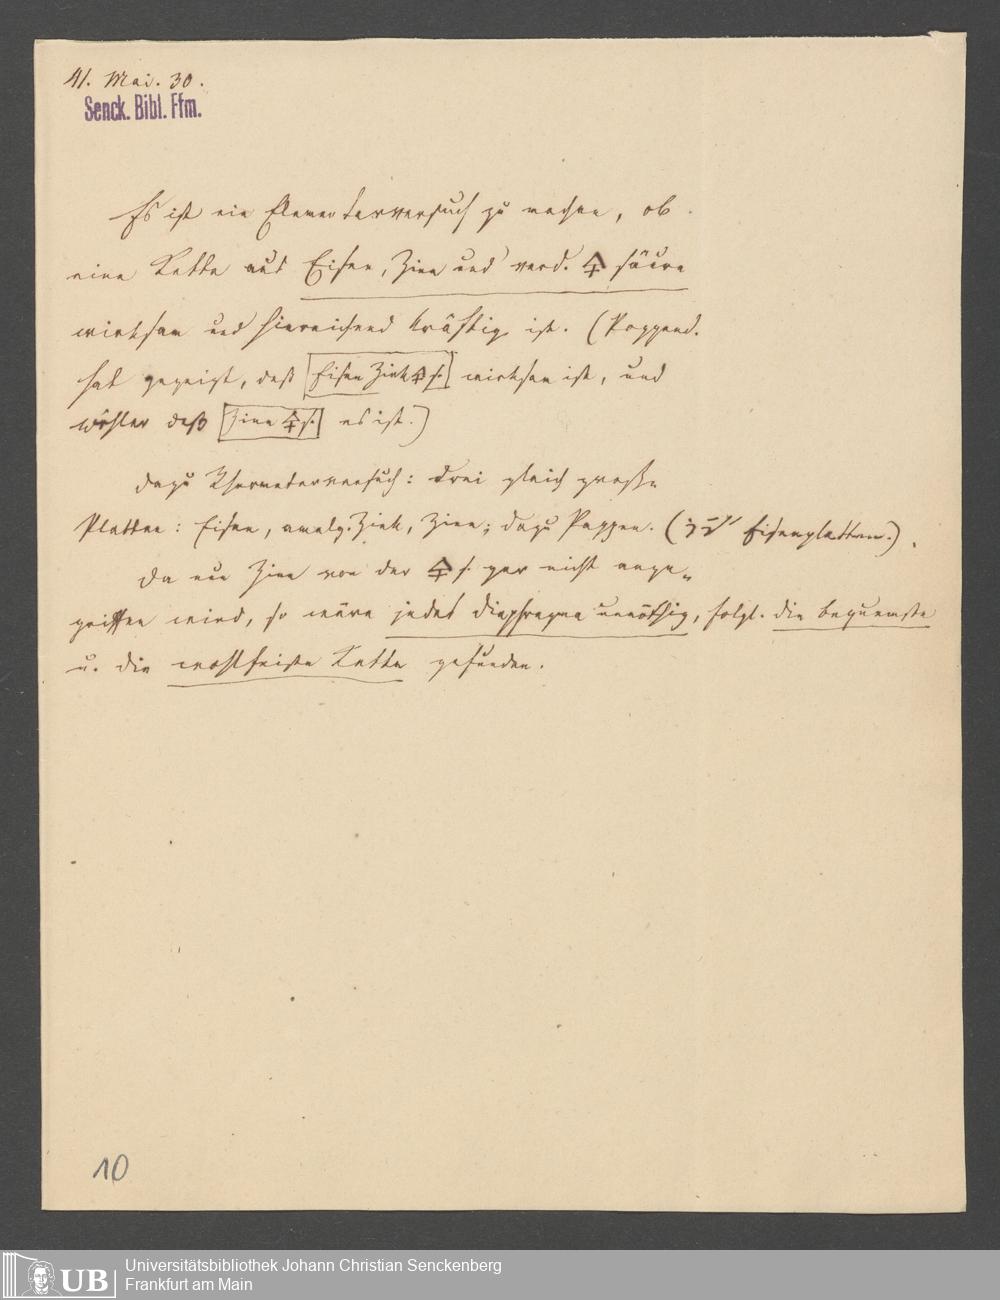 41. Mai. 30.
Senck. Bibl. Ffm.
Es ist ein Elementarversuch zu machen, ob
eine Kette aus Eisen, Zinn und verd. 🜍 säure
wirksam und hinreichend kräftig ist. (Poggend.
hat gezeigt, daß Eisen Zink 🜍 s. wirksam ist, und
Wöhler daß Zinn 🜍 s. es ist.)
Dazu : drei gleich große
Platten: Eisen, amalg. Zink, Zinn; dazu Pappen. ( Eisenplatten.)
Da nun Zinn von der 🜍 s. gar nicht ange-
griffen wird, so wäre jedes Diaphragma unnöthig, folgl. die bequemste
u. die wohlfeilste Kette gefunden.
10
UB
Universitätsbibliothek Johann Christian Senckenberg
Frankfurt am Main